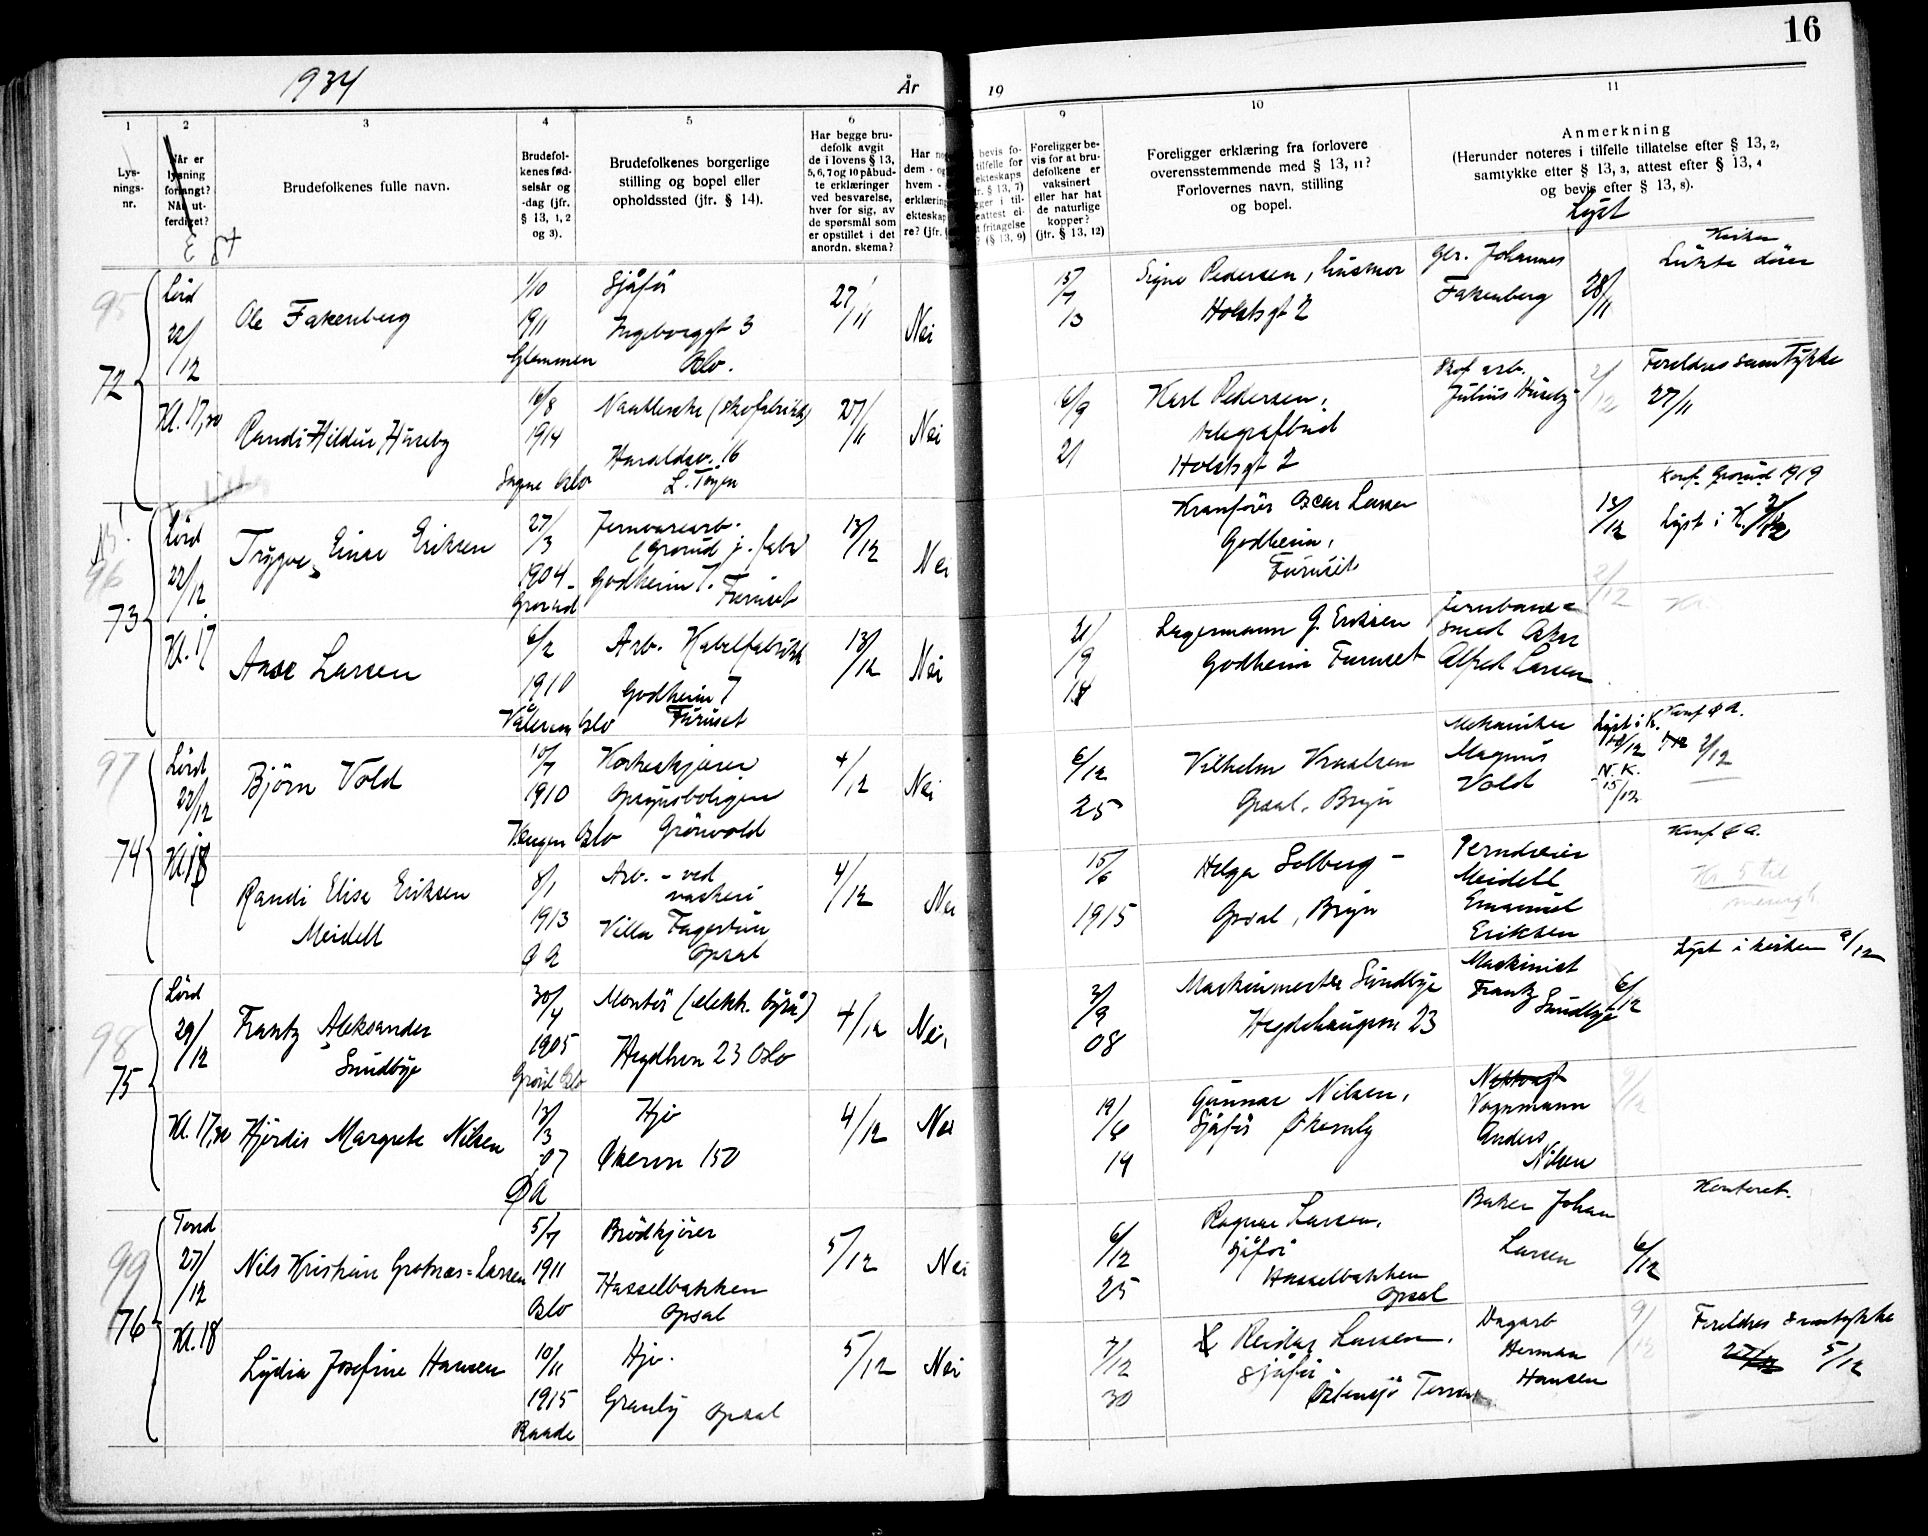 16
1934
År
19
1
2
3
4
5
6
7
9
10
11
Lys-
nings-
nr.
Når er
lysning
forlangt?
Når ut-
ferdiget?
Brudefolkenes fulle navn.
Brudefol-
kenes fød-
selsår og
-dag (jfr.
§ 13, 1, 2
og 3).
Brudefolkenes borgerlige
stilling og bopel eller
opholdssted (jfr. § 14).
Har begge bru-
defolk avgit
de i lovens § 13,
5, 6, 7 og 10 påbud-
te erklæringer
ved besvarelse,
hver for sig, av
de spørsmål som
er opstillet i det
anordn. skema?
Foreligger be-
vis for at bru-
defolkene er
vaksinert
eller har hat
de naturlige
kopper?
(jfr. § 13, 12)
Foreligger erklæring fra forlovere
overensstemmende med § 13, 11?
Forlovernes navn, stilling
og bopel.
Anmerkning
(Herunder noteres i tilfelle tillatelse efter § 13, 2,
samtykke efter § 13, 3, attest efter § 13, 4
og bevis efter § 13, 8).
Lyst
95
72
Lørd
22/12
Kl. 17,30
Ole Fakenberg
1/10
1911
Glemmen
Sjåfør
Ingeborggt 3
Oslo.
27/11
Nei
15/7
13
Signe Pedersen, husmor
Holstsgt 2
Gbr. Johannes
Fakenberg
28/11
Lukte dører
Randi Hildur Huseby
16/8
1914
Sagene Oslo
(Skofabrikk)
Haraldsv. 16
L. Tøyen
27/11
Nei
6/9
21
Karl Pedersen,
telegrafbud
Holstsgt 2
Skof. arb.
Julius Huseby
2/12
Foreldres samtykke
27/11
96
73
Lørd
22/12
Kl. 17
Trygve Einar Eriksen
27/3
1904
Grorud
Jernvarearb.
(Grorud j. fabr)
Godheim 7. Furuset
13/12
Nei
Kranfører Oscar Larsen
Godheim,
Furuset
13/12
Konf. Grorud 1919
Lyst i K.
Aase Larsen
6/2
1910
Vålereng Oslo
Arb. Kabelfabrikk
Godheim 7
Furuset
13/12
Nei
21/9
Lagermann G. Eriksen
Godheim Furuset
Jernbane=
smed Oskar
Alfred Larsen
97
74
Lørd
22/12
Kl. 18
Bjørn Vold
10/7
1910
Oslo
Opsynsboligen
Grønvold
4/12
Nei
6/12
25
Vilhelm Knudsen
Opsal, Bryn
Mekaniker
Magnus
Vold
Lyst i K.
N. K.
15/12
Konf Ø A.
2/12
Randi Elise Eriksen
Meidell
8/1
1913
Ø A
Arb. - ved
vaskeri
Villa Fagertun
Opsal
4/12
Nei
15/6
1915
Helga Solberg -
Opsal, Bryn
Meidell
Emanuel
Eriksen
Konf Ø A.
98
75
Lørd
29/12
Kl. 17,30
Frantz Aleksander
Sundbye
30/4
1905
Oslo
Montør (elektr. byrå)
Hegdhvn 23 Oslo
4/12
Nei,
3/9
08
Maskinmester Sundbye
Hegdehaugsvn 23
Maskinist
Frantz
Sundbye
6/12
Lyst i kirken 9/12
Hjørdis Margrete Nilsen
13/3
07
Ø A
Hjv
Økernvn 150
4/12
Nei
19/6
14
Gunnar Nilsen,
Sjåfør Økernly
Vognmann
Anders
Nilsen
99
76
Torsd
27/12
Kl. 18
Nils Kristian Grotnæs=Larsen
5/7
1911
Oslo
Brødkjører
Hasselbakken
Opsal
5/12
Nei
6/12
25
Ragnar Larsen,
Sjåfør
Hasselbakken
Opsal
Baker Johan
Larsen
6/12
Kontoret.
Lydia Josefine Hansen
10/11
1915
Raade
Hjv.
Granly Opsal
5/12
Nei
7/12
30
Reidar Larsen,
Sjåfør
Østensjø Terrasse
Dagarb
Herman
Hansen
9/12
Foreldres samtykke
5/12